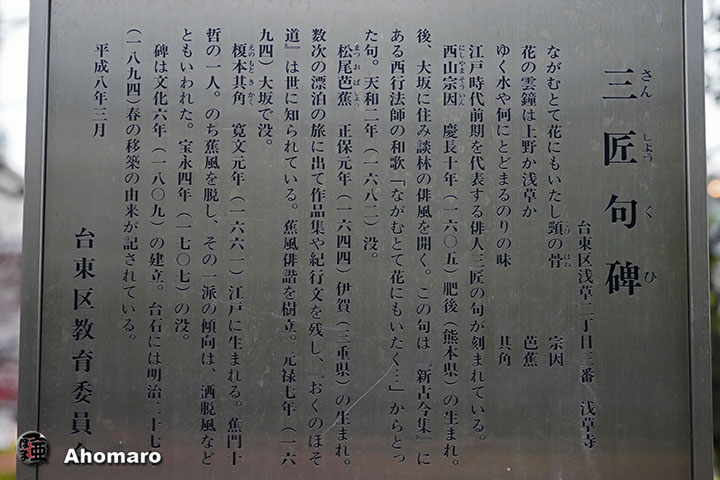 三匠句碑
さんしょうくひ
台東区浅草二丁目三番 浅草寺
ながむとて花にもいたし頸の骨 宗因
くび ほね
花の雲鐘は上野か浅草か 芭蕉
ゆく水や何にとどまるのりの味 其角
江戸時代前期を代表する俳人三匠の句が刻まれている。
西山宗因 慶長十年(一六〇五)肥後(熊本県)の生まれ。
にしやまそういん
後、大坂に住み談林の俳風を開く。この句は、『新古今集』に
ある西行法師の和歌「ながむとて花にもいたく…」からとっ
た句。天和二年(一六八二)没。
松尾芭蕉 正保元年(一六四四)伊賀(三重県)の生まれ。
まつおばしょう
数次の漂泊の旅に出て作品集や紀行文を残し、『おくのほそ
道』は世に知られている。蕉風俳諧を樹立。元禄七年(一六
九四)大坂で没。
榎本其角 寛文元年(一六六一)江戸に生まれる。蕉門十
えのもときかく
哲の一人。のち蕉風を脱し、その一派の傾向は、洒脱風など
ともいわれた。宝永四年(一七〇七)の没。
碑は文化六年(一八〇九)の建立。台石には明治二十七
(一八九四)春の移築の由来が記されている。
平成八年三月
台東区教育委員会
Ahomaro